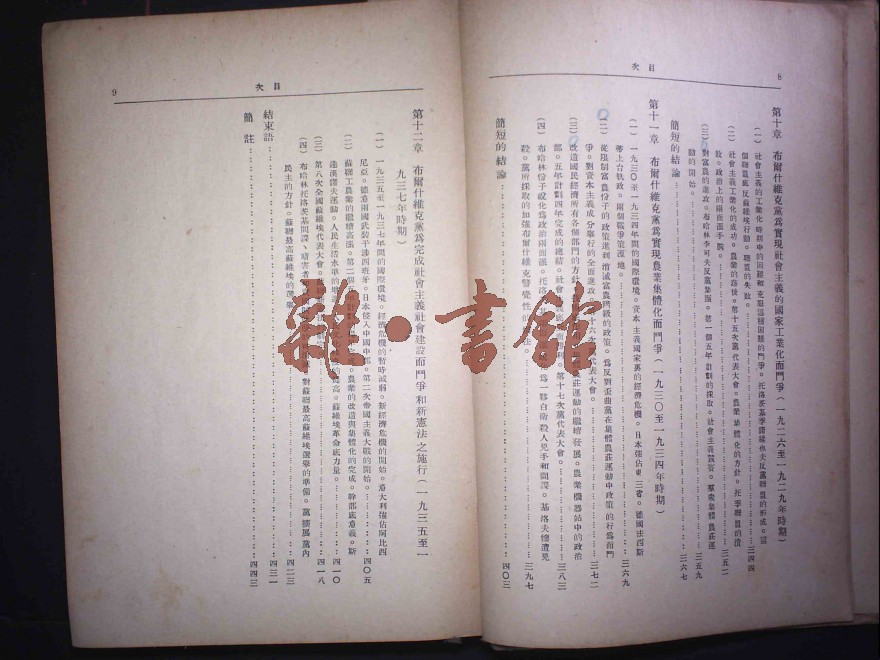 8
目次
第十章 布爾什維克黨爲實現社會主義的國家工業化而鬥爭(一九二六至一九二九年時期)
(一) 社會主義的工業化時期中的困難和克服這種困難的鬥爭。托洛茨基季諾維也夫反黨聯盟的形成。這
個聯盟底反蘇維埃行動。聯盟的失敗………三四四
(二) 社會主義工業化的成功。農業的落後。第十五次黨代表大會。農業集體化的方針。托季聯盟的潰
敗。政治上的兩面手段………三五二
(三) 對富農的進攻。布哈林李可夫反黨集團。第一個五年計劃的採取。社會主義競賽。羣衆集體農莊運
動的開始。………三五九
簡短的結論………三六七
第十一章 布爾什維克黨爲實現農業集體化而鬥爭(一九三〇至一九三四年時期)
(一) 一九三〇至一九三四年間的國際環境。資本主義國家裏的經濟危機。日本強佔東三省。德國法西斯
蒂上台執政。兩個戰爭策源地。………三六九
(二) 從限制富農份子的政策進到消滅富農階級的政策。爲反對歪曲黨在集體農莊運動中政策的行爲而鬥
爭。對資本主義成分舉行的全面進攻。第十六次黨代表大會。………三七二
(三) 改造國民經濟所有各個部門的方針。農莊運動的繼續發展。農業機器站中的政治
部。五年計劃四年完成的總結。社會主義第十七次黨代表大會。………三八三
(四) 布哈林份子蛻化爲政治兩面派。托洛爲一夥白衛殺人兇手和間諜。基洛夫慘遭兇
殺。黨所採取的加強布爾什維克警覺性的法。………三九七
簡短的結論………四〇三
目次
9
第十二章 布爾什維克黨爲完成社會主義社會建設而鬥爭和新憲法之施行(一九三五至一
九三七年時期)
(一) 一九三五至一九三七年間的國際環境。經濟危機的暫時減弱。新經濟危機的開始。意大利強佔阿比西
尼亞。德意兩國武裝干涉西班牙。日本侵入中國中部。第二次帝國主義大戰的開始。………四〇五
(二) 蘇聯工農業的繼續高漲。第二個五農業的改造與集體化的完成。幹部底意義。斯
達漢諾夫運動。人民生活水準的高。蘇維埃革命底力量。………四一〇
(三) 第八次全國蘇維埃代表大會。………四一八
(四) 布哈林托洛茨基間諜、暗害者對蘇聯最高蘇維埃選舉的準備。黨擴展黨內
民主的方針。蘇聯最高蘇維埃的選舉………四二三
結束語………四三一
簡註………四四三
雜·書館